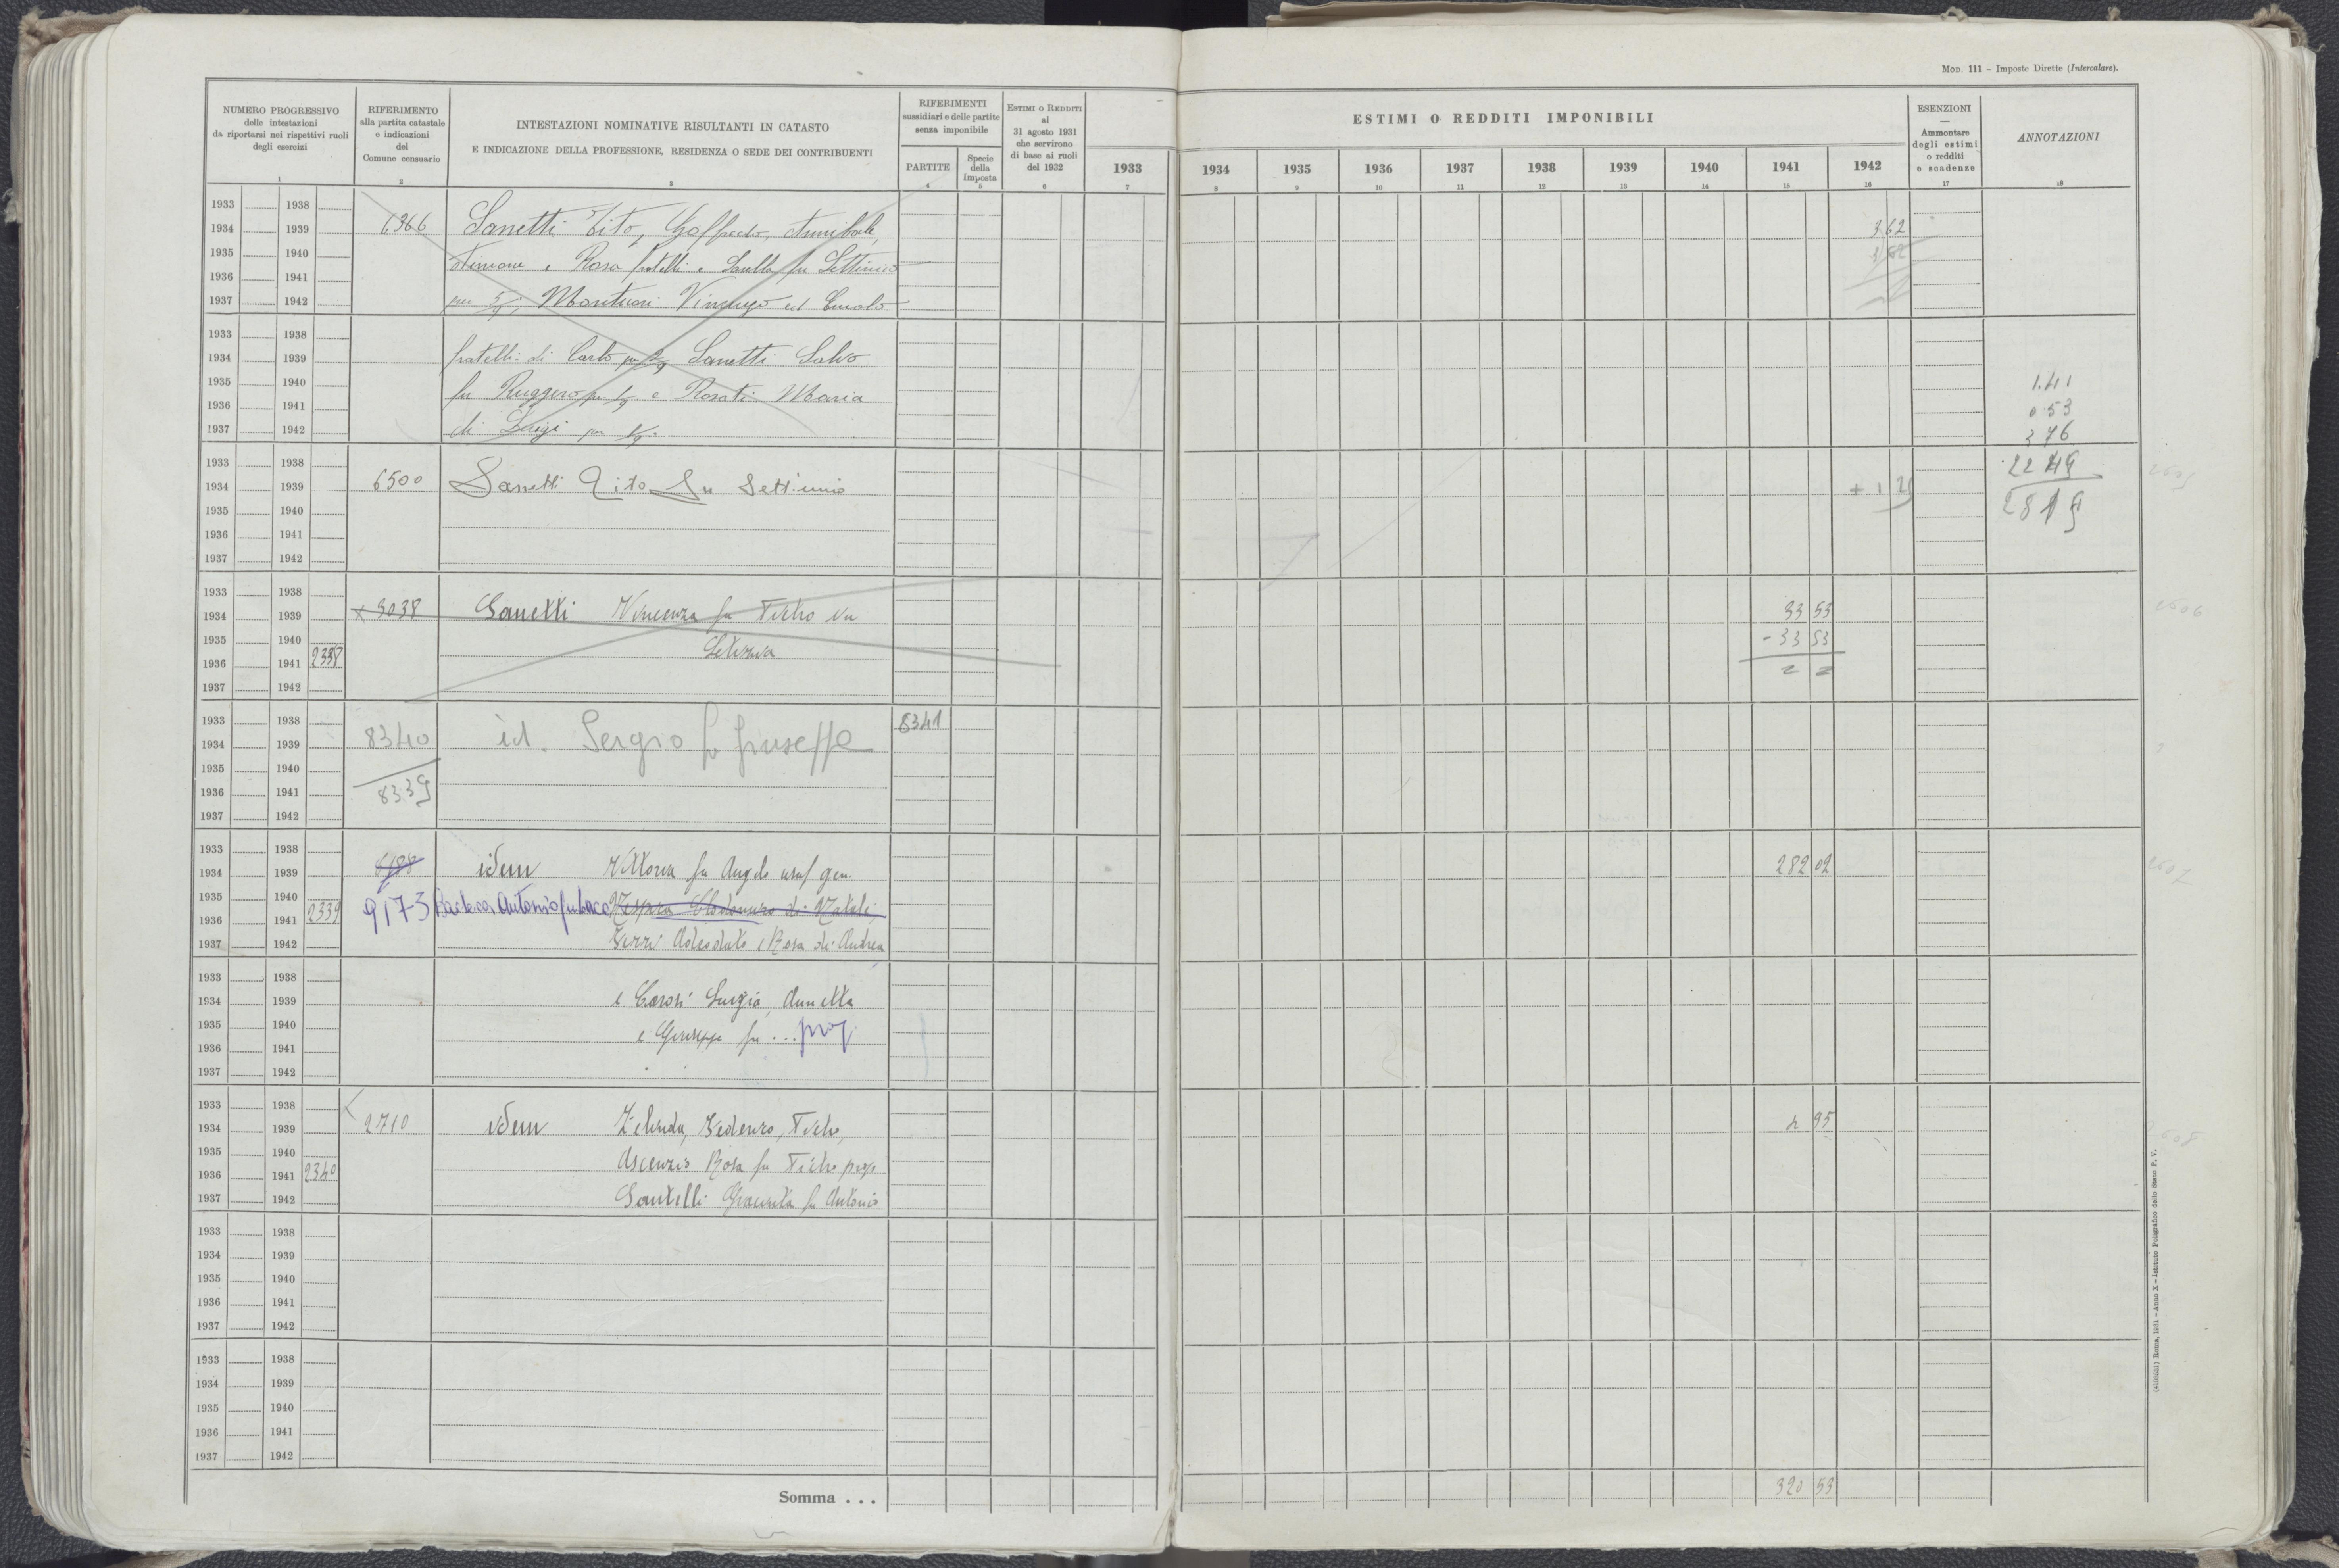 MOD. 111 – Imposte Dirette (Intercalare).
NUMERO PROGRESSIVO
delle intestazioni
da riportarsi nei rispettivi ruoli
degli esercizi
1
RIFERIMENTO
alla partita catastale
e indicazioni
del
Comune censuario
2
INTESTAZIONI NOMINATIVE RISULTANTI IN CATASTO
E INDICAZIONE DELLA PROFESSIONE, RESIDENZA O SEDE DEI CONTRIBUENTI
3
RIFERIMENTI
sussidiari e delle partite
senza imponibile
PARTITE
4
Specie
della
imposta
5
ESTIMI O REDDITI
al
31 agosto 1931
che servirono
di base ai ruoli
del 1932
6
ESTIMI O REDDITI IMPONIBILI
1933 1934 1935 1936 1937 1938 1939 1940 1941 1942
7 8 9 10 11 12 13 14 15 16
ESENZIONI
—
Ammontare
degli estimi
o redditi
e scadenze
17
ANNOTAZIONI
18
1933 1938
1934 1939 6366 Sanetti Tito, Goffredo, Annibale, 3 62
1935 1940 e Rosa fratelli e sorella fu Settimio 3 62
1936 1941
1937 1942 per Mantuori Vincenzo ed
1933 1938
1934 1939 fratelli di Carlo per Sanetti Salvo
1935 1940 1.41
fu Ruggero per e Rosati Maria
1936 1941 0 53
1937 1942 di Luigi per 3 76
1933 1938 22 49
1934 1939 6500 Sanetti Tito fu Settimio + 1 21
28 19
1935 1940
1936 1941
1937 1942
1933 1938
1934 1939 3038 Sanetti Vincenza fu Tito 33 53
1935 1940 - 33 53
1936 1941 2338
1937 1942
1933 1938 8341
1934 1939 8340 id. Sergio fu Giuseppe
1935 1940
1936 1941 8339
1937 1942
1933 1938
1934 1939 6188 idem Vittoria fu Angelo usuf gen. 282 02
1935 1940
1936 1941 2339 9173 Antonio fu di Natali
1937 1942 Adeodato e Rosa di Andrea
1933 1938
1934 1939 e Carosi Luigia, Annetta
1935 1940
e Giuseppe fu ... prop
1936 1941
1937 1942
1933 1938
1934 1939 2710 idem Zelinda, 4 95
1935 1940
1936 1941 2340 Rosa fu prop
1937 1942 Santelli Giacinta fu Antonio
1933 1938
1934 1939
1935 1940
1936 1941
1937 1942
1933 1938
1934 1939
1935 1940
1936 1941
1937 1942
Somma . . . 320 53
Roma, 1931 – Anno X – Istituto Poligrafico dello Stato P. V.